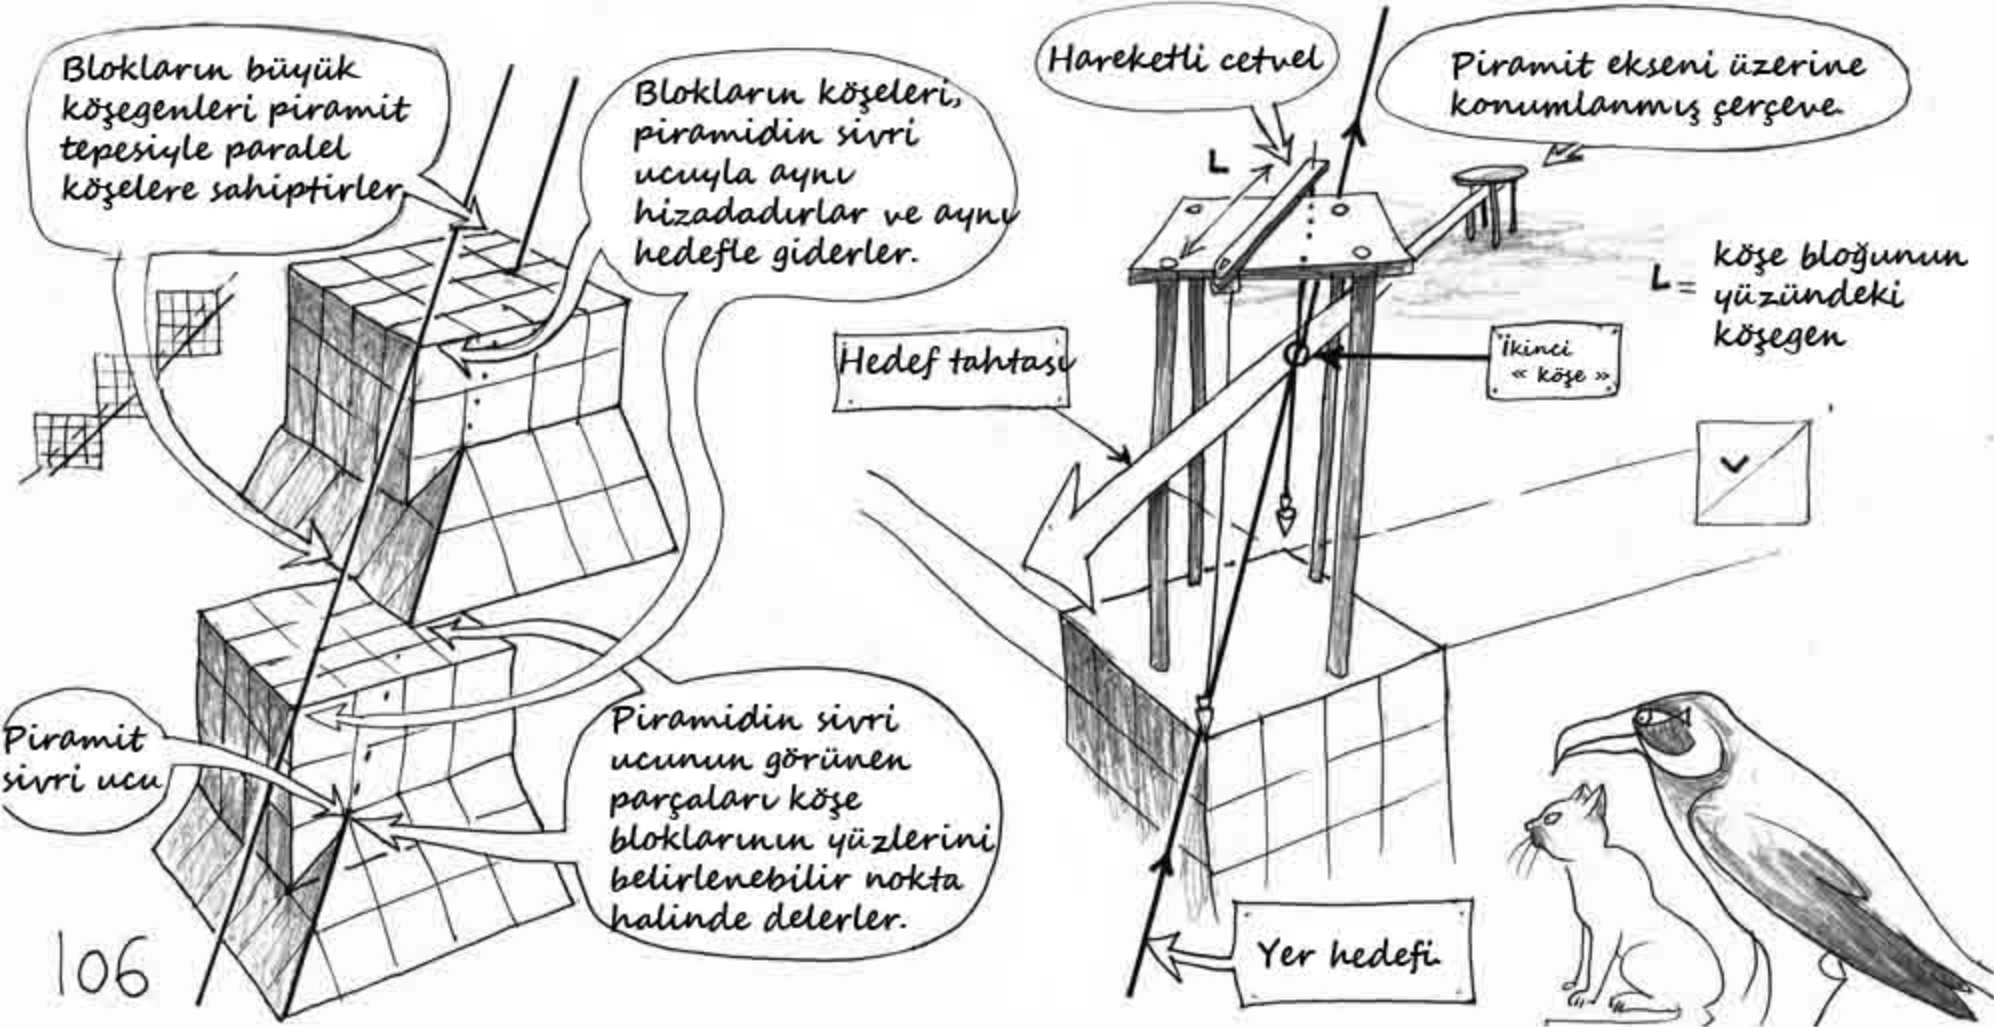 Blokların büyük
köşegenleri piramit
tepesiyle paralel
köşelere sahiptirler
Blokların köşeleri,
piramidin sivri
ucuyla aynı
hizadadırlar ve aynı
hedefle giderler.
Piramit
sivri ucu
Piramidin sivri
ucunun görünen
parçaları köşe
bloklarının yüzlerini
belirlenebilir nokta
halinde delerler.
106
Hareketli cetvel
Piramit ekseni üzerine
konumlanmış çerçeve.
L
L = köşe bloğunun
yüzündeki
köşegen
Hedef tahtası
İkinci
« köşe »
Yer hedefi.